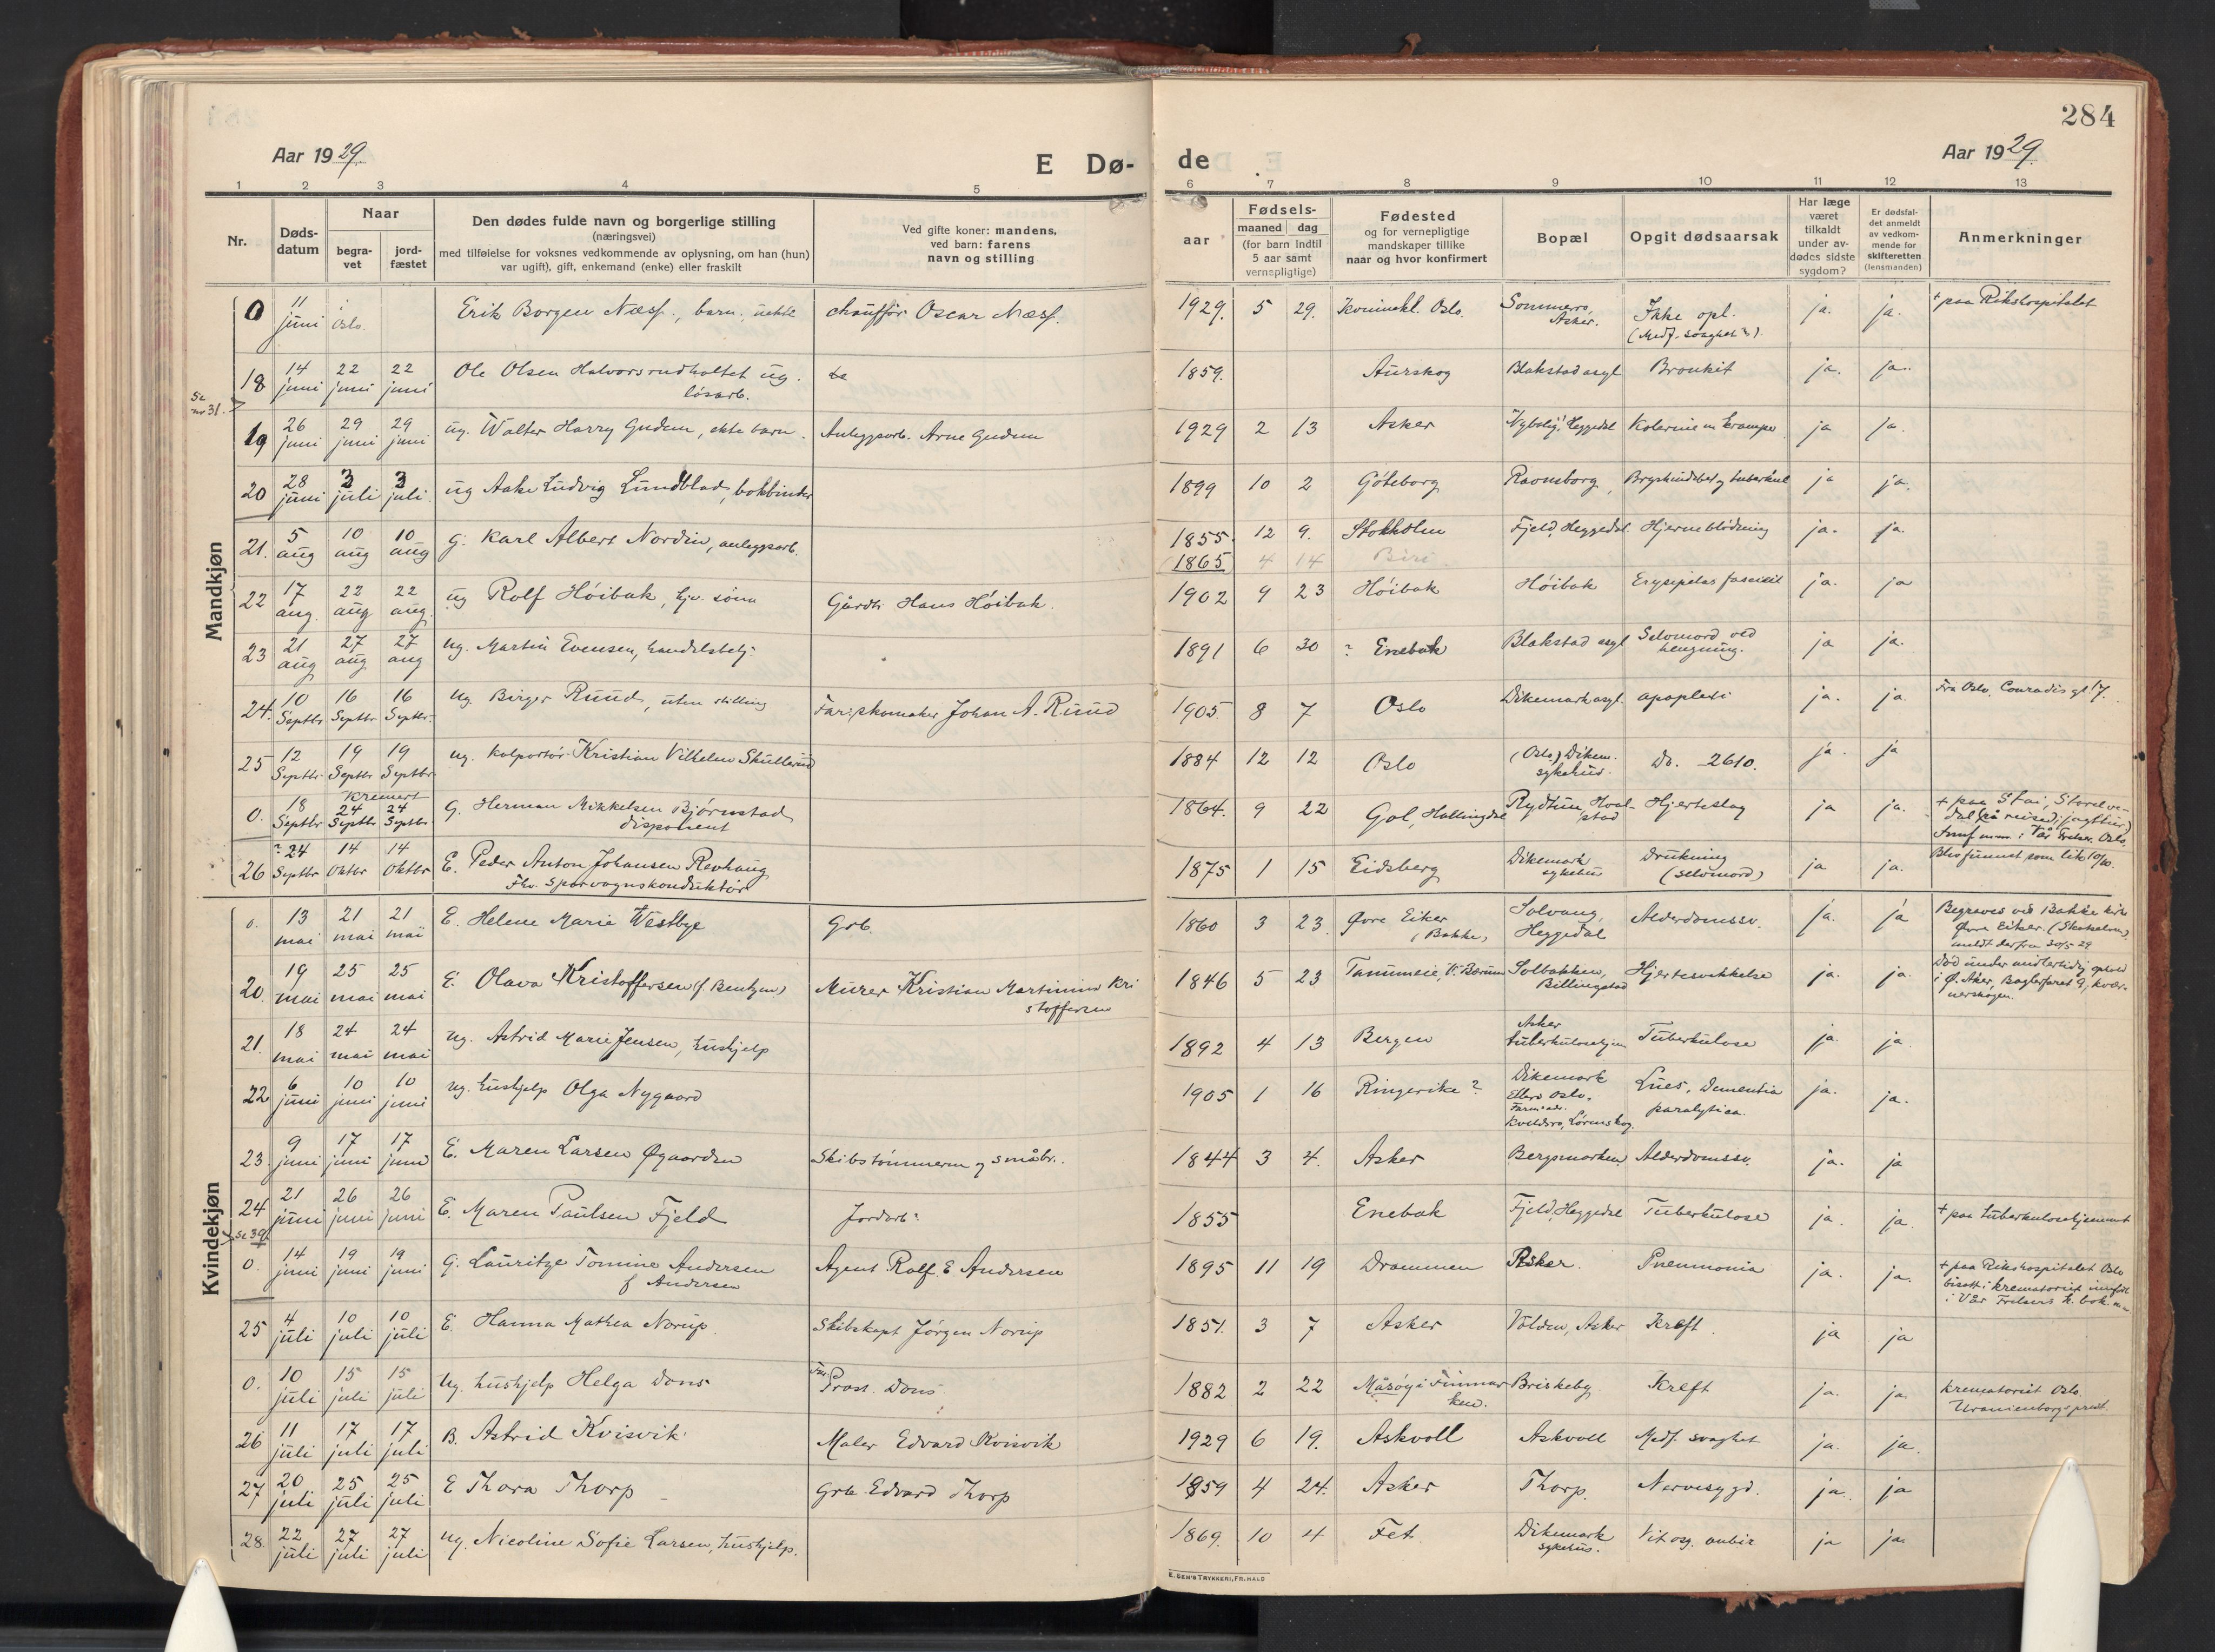 284
Aar 1929.
E Dø-de
Aar 1929.
1 2 3 4 5 6 7 8 9 10 11 12 13
Nr.
Døds-
datum
Naar
begra-
vet
jord-
fæstet
Den dødes fulde navn og borgerlige stilling
(næringsvei)
med tilføielse for voksnes vedkommende av oplysning, om han (hun)
var ugift), gift, enkemand (enke) eller fraskilt
Ved gifte koner: mandens,
ved barn: farens
navn og stilling
aar
Fødsels-
maaned dag
(for barn indtil
5 aar samt
vernepligtige)
Fødested
og for vernepligtige
mandskaper tillike
naar og hvor konfirmert
Bopæl
Opgit dødsaarsak
Har læge
været
tilkaldt
under av-
dødes sidste
sygdom?
Er dødsfal-
det anmeldt
av vedkom-
mende for
skifteretten
(lensmanden)
Anmerkninger
Mandkjøn
0 11 juni Oslo. Erik Borgen Næss., barn, chauffør Oscar Næss. 1929. 5 29. Oslo. Sommerro, Asker. Ikke opl. (Medf. svaghet?) ja. ja. + paa Rikshospitalet
18 14 juni 22 juni 22 juni Ole Olsen Halvorsrudholtet ug. løsarb. 1859. Aurskog Blakstad asyl Bronkit ja. ja.
Se nr 31.
19 26 juni 29 juni 29 juni ug. Walter Harry Gudem, ekte barn. Anleggsarb. Arne Gudem 1929 2 13 Asker Nybolig, Heggedal Kolerine m krampe ja ja.
20 28 juni 3 juli 3 juli. ug Aake Ludvig Lundblad, bokbinder 1899 10 2 Göteborg Ravnsborg, tuberkul ja ja.
21. 5 aug 10 aug 10 aug g. Karl Albert Nordin, anleggsarb. 1855. 12 9. Stokholm Fjeld, Heggedal Hjerneblødning ja. ja.
1865 4 14 Biri
22 17 aug. 22 aug 22 aug. ug Rolf Høibak, hjv. sønn Gårdbr Hans Høibak. 1902 9 23 Høibak Høibak Erysipelas ja. ja
23 21 aug 27 aug 27 aug ug. Martin Evensen, handelsbetj. 1891 6 30 ? Enebak Blakstad asyl Selvmord ved hengning. ja ja.
24. 10 Septbr 16 Septbr 16 Septbr. ug. Birger Ruud, uten stilling Far: skomaker Johan A. Ruud 1905. 8 7 Oslo Dikemark asyl. apoplexi ja. ja Fra Oslo, Conradis gt 17.
25 12 Septbr 19 Septbr 19 Septbr ug. kolportør Kristian Vilhelm Skullerud 1884 12 12 Oslo (Oslo) Dikem. sykehus. Do. 2610. ja. ja
0. 18 Septbr kremert 24 Septbr 24 Septbr. G. Herman Mikkelsen Bjørnstad disponent 1864. 9 22 Gol, Hallingdal Rydtun, Hvalstad Hjerteslag ja ja. + paa Stai, Storelvedal (på reise d; jagttur) i Vår Frelser. Oslo.
26 ? 24 Septbr 14 Oktbr 14 Oktbr E. Peder Anton Johansen Revhaug Fhv. Sporvognskonduktør 1875 1 15 Eidsberg Dikemark sykehus Drukning (selvmord) ja ja. Blev funnet som lik 10/10.
Kvindekjøn
0. 13 mai 21 mai 21 mai E. Helene Marie Westbye Grb. 1860 3 23. Øvre Eiker (Bakke) Solvang, Heggedal Alderdomssv. ja. ja Begraves ved Bakke kirke Øvre Eiker. meldt derfra 30/5 29
20. 19 mai 25 mai 25 mai E. Olava Kristoffersen (f. Bentzen) Murer Kristian Martinius Kristoffersen 1846 5 23 Tanummeie, V. Bærum Solbakken, Billingstad Hjertesvakkelse ja. ja. Død under midlertidig ophold i Ø. Aker, Baglerfaret 9, Kværnerskogen.
21. 18 mai 24 mai 24 mai ug. Astrid Marie Jensen, hushjelp 1892 4 13 Bergen Asker tuberkulosehjem Tuberkulose ja. ja.
22 6 juni 10 juni 10 juni ug. hushjelp Olga Nygaard 1905 1 16 Ringerike? Dikemark Ellers Oslo. Kveldsro, Lørenskog. Lues, Dementia paralytica. ja. ja.
23. 9 juni 17 juni 17 juni E. Maren Larsen Øgaarden Skibstømmerm og småbr. 1844 3 4. Asker Bergsmarken Alderdomssv. ja. ja
24 21 juni 26 juni 26 juni E. Maren Paulsen Fjeld Jordarb. 1855 Enebak Fjeld, Heggedal Tuberkulose ja. ja. + paa tuberkulosehjemmet
Se 39
0. 14 juni 19 juni 19 juni g. Lauritze Tomine Andersen f Andersen Agent Rolf E. Andersen 1895 11 19 Drammen Asker. Pneumonia ja. ja. + paa Rikshospitalet Oslo bisatt i krematoriet innført i Vår Frelsers k. bok.
25 4 juli 10 juli 10 juli E. Hanna Mathea Norup. Skibskapt Jørgen Norup 1851. 3 7 Asker Volden, Asker Kreft. ja ja
0. 10 juli 15 juli 15 juli ug. hushjelp Helga Dons Far: Prost. Dons. 1882 2 22 Måsøy i Finnmarken. Briskeby Kreft ja. ja. krematoriet Oslo. Uranienborgs prest.
26 11 juli 17 juli 17 juli B. Astrid Kvisvik Maler Edvard Kvisvik 1929 6 19. Askvoll Askvoll Medf. svaghet ja. ja.
27 20 juli 25 juli 25 juli E Thora Thorp Grb. Edvard Thorp 1859 4 24. Asker Thorp. Nervesygd. ja. ja
28. 22 juli 27 juli 27 juli ug. Nicoline Sofie Larsen, hushjelp. 1869. 10 4 Fet. Dikemark sykehus. ja ja.
E. SEM'S TRYKKERI, FR.HALD